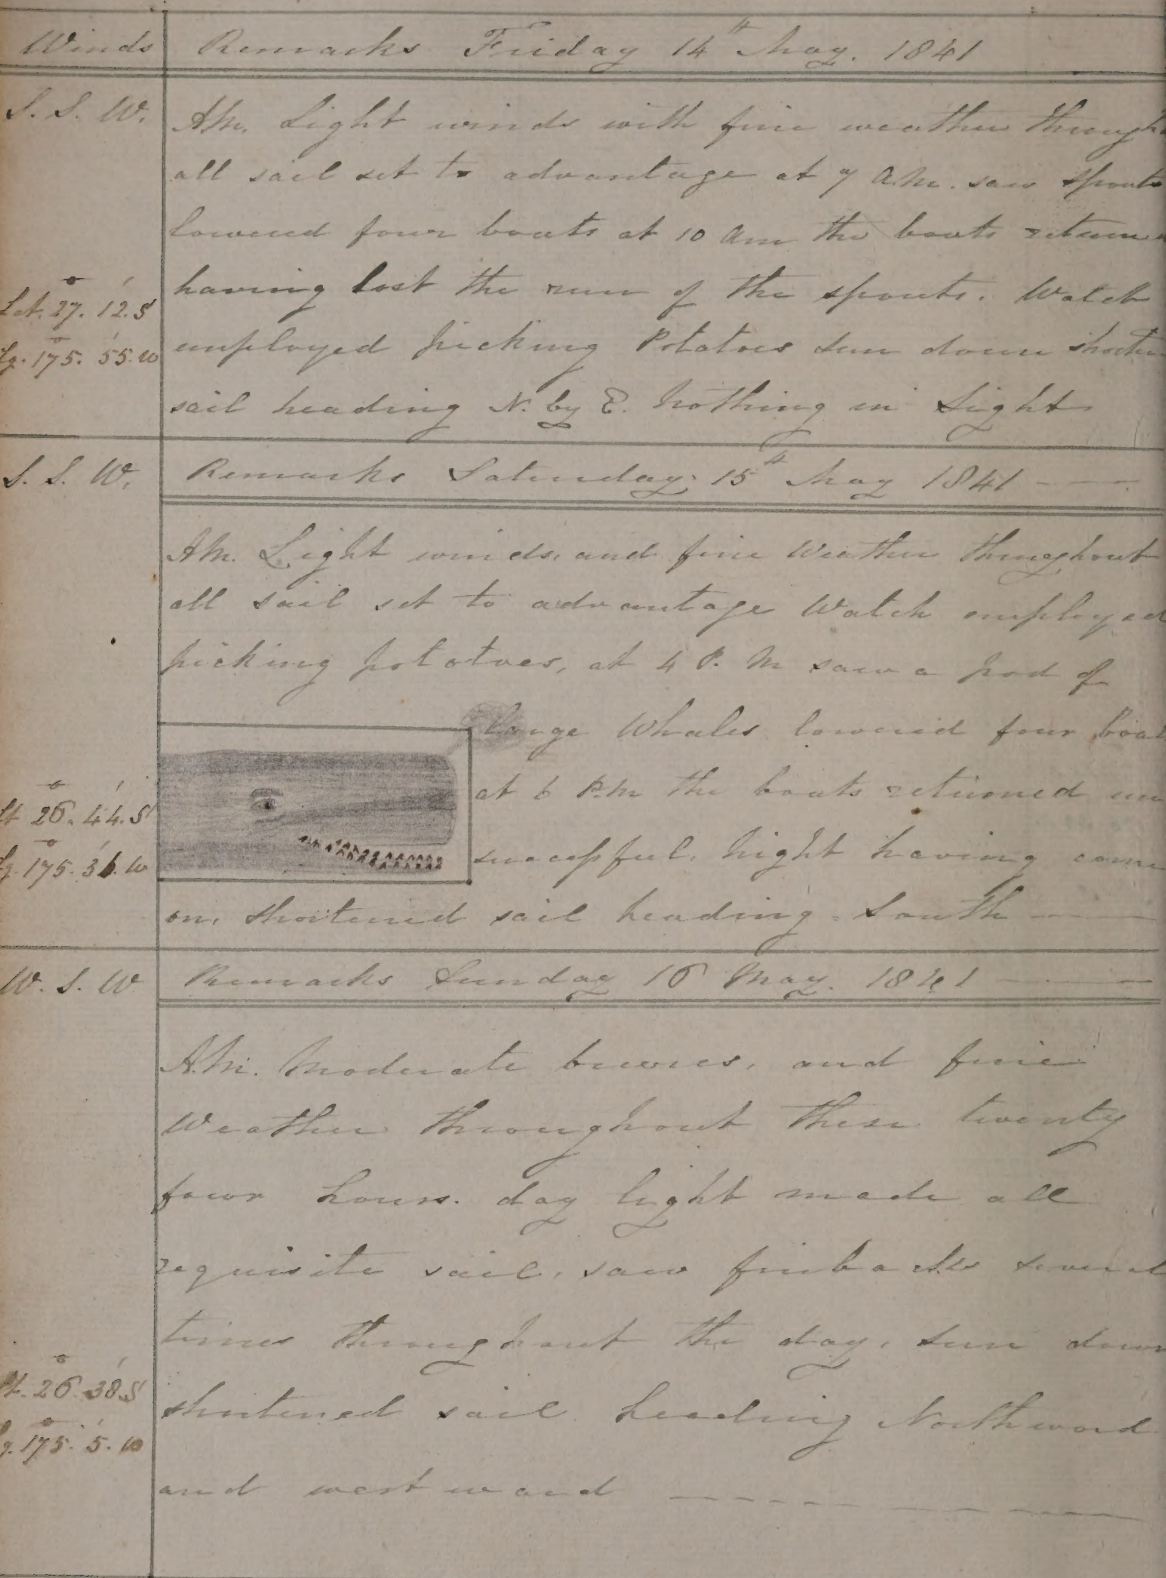 Winds Remarks Friday 14th May. 1841
S. S. W. AM. Light winds with fine weather through
all sail set to advantage at 7 A.M. saw Spouts
lowered four boats at 10 Am the boats return
Lat. 27. 12. S having lost the run of the spouts. Watch
Lg. 175. 55. W employed picking Potatoes Sun down shorten
sail heading N. by E. Nothing in Sight
S. S. W. Remarks Saturday 15th May 1841
AM. Light winds and fine Weather throughout
all sail set to advantage Watch employed
picking potatoes, at 4 P. M saw a pod of
large Whales lowered four boat
Lt 26. 44. S at 6 P.M the boats returned un
Lg. 175. 36. W successful. Night having come
on, shortened sail heading South
W. S. W Remarks Sunday 16 May. 1841
A.M. Moderate breezes, and fine
Weather throughout these twenty
four hours. day light made all
requisite sail, saw finbacks several
times throughout the day, Sun down
Lt. 26. 38. S shortened sail heading Northward
Lg. 175. 5. W
and westward